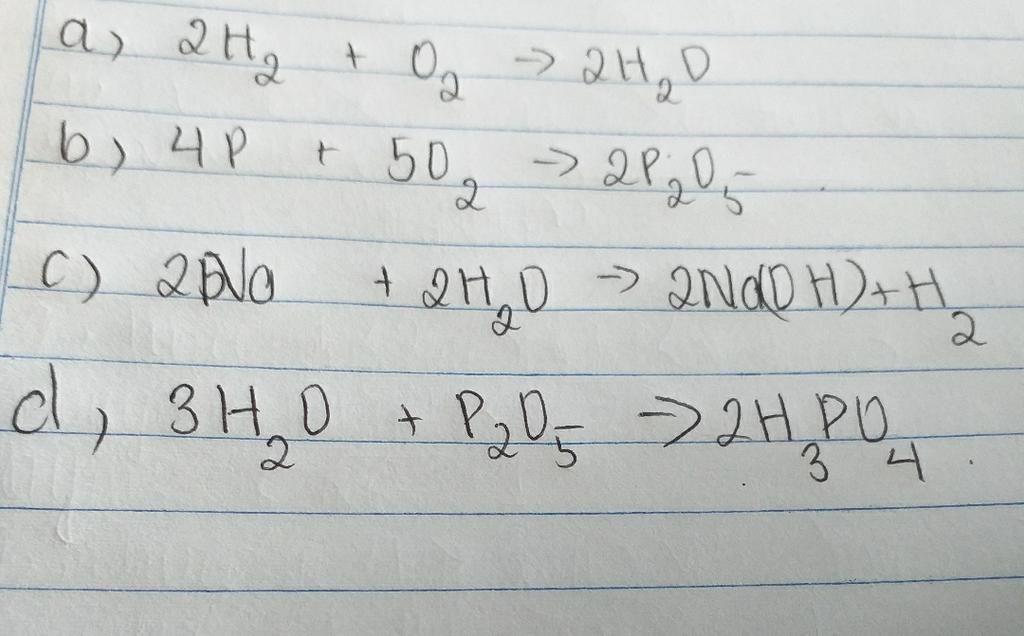 a) 2H₂ + O₂ → 2H₂O
b) 4P + 5O₂ → 2P₂O₅
c) 2Na + 2H₂O → 2Na(OH) + H₂
d, 3H₂O + P₂O₅ → 2H₃PO₄.